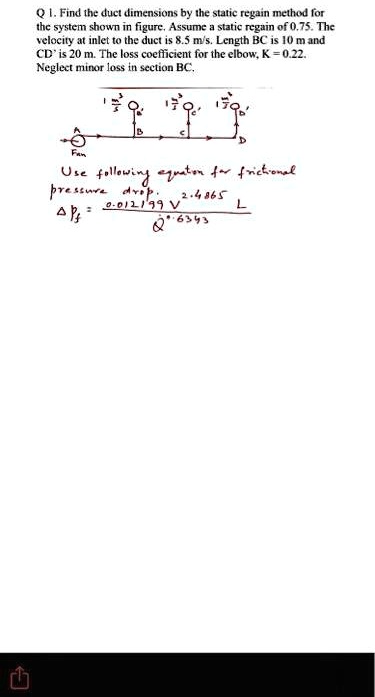 Q 1. Find the duct dimensions by the static regain method for
the system shown in figure. Assume a static regain of 0.75. The
velocity at inlet to the duct is 8.5 m/s. Length BC is 10 m and
CD' is 20 m. The loss coefficient for the elbow, K = 0.22.
Neglect minor loss in section BC.
1 m³/s 1 m³/s 1 m³/s
B' C' D'
A B C D
Fan
Use following equation for frictional
pressure drop.
ΔPf = 0.012199 V^2.4865 L / Q̇^0.6343